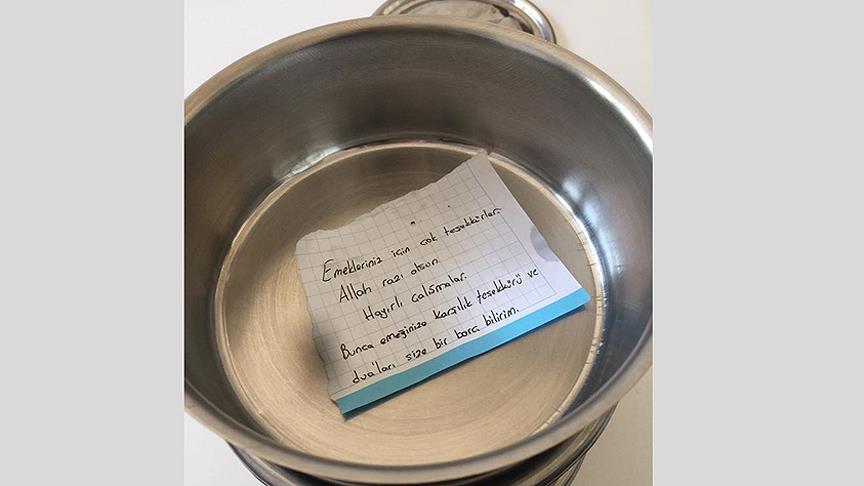 Emekleriniz için çok teşekkürler.
Allah razı olsun.
Hayırlı çalışmalar.
Bunca emeğinize karşılık teşekkürü ve
dua'ları size bir borç bilirim.